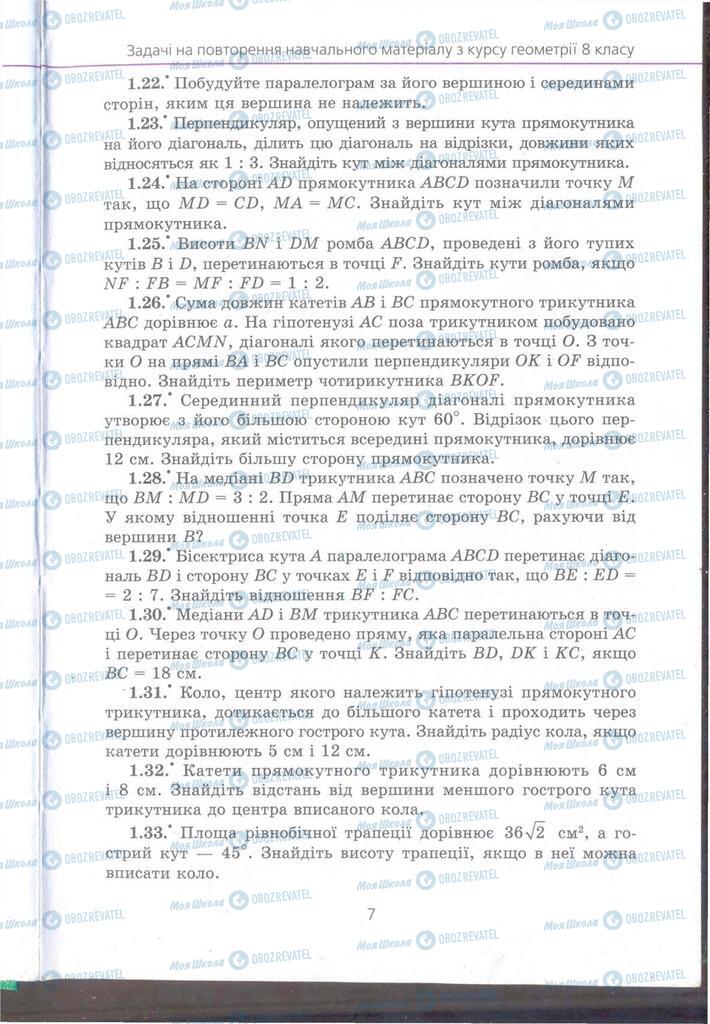 Задачі на повторення навчального матеріалу з курсу геометрії 8 класу
1.22.• Побудуйте паралелограм за його вершиною і серединами
сторін, яким ця вершина не належить.
1.23.• Перпендикуляр, опущений з вершини кута прямокутника
на його діагональ, ділить цю діагональ на відрізки, довжини яких
відносяться як 1 : 3. Знайдіть кут між діагоналями прямокутника.
1.24.• На стороні AD прямокутника ABCD позначили точку M
так, що MD = CD, MA = MC. Знайдіть кут між діагоналями
прямокутника.
1.25.• Висоти BN і DM ромба ABCD, проведені з його тупих
кутів B і D, перетинаються в точці F. Знайдіть кути ромба, якщо
NF : FB = MF : FD = 1 : 2.
1.26.• Сума довжин катетів AB і BC прямокутного трикутника
ABC дорівнює a. На гіпотенузі AC поза трикутником побудовано
квадрат ACMN, діагоналі якого перетинаються в точці O. З точ-
ки O на прямі BA і BC опустили перпендикуляри OK і OF відпо-
відно. Знайдіть периметр чотирикутника BKOF.
1.27.• Серединний перпендикуляр діагоналі прямокутника
утворює з його більшою стороною кут 60°. Відрізок цього пер-
пендикуляра, який міститься всередині прямокутника, дорівнює
12 см. Знайдіть більшу сторону прямокутника.
1.28.• На медіані BD трикутника ABC позначено точку M так,
що BM : MD = 3 : 2. Пряма AM перетинає сторону BC у точці E.
У якому відношенні точка E поділяє сторону BC, рахуючи від
вершини B?
1.29.• Бісектриса кута A паралелограма ABCD перетинає діаго-
наль BD і сторону BC у точках E і F відповідно так, що BE : ED =
= 2 : 7. Знайдіть відношення BF : FC.
1.30.• Медіани AD і BM трикутника ABC перетинаються в точ-
ці O. Через точку O проведено пряму, яка паралельна стороні AC
і перетинає сторону BC у точці K. Знайдіть BD, DK і KC, якщо
BC = 18 см.
1.31.• Коло, центр якого належить гіпотенузі прямокутного
трикутника, дотикається до більшого катета і проходить через
вершину протилежного гострого кута. Знайдіть радіус кола, якщо
катети дорівнюють 5 см і 12 см.
1.32.• Катети прямокутного трикутника дорівнюють 6 см
і 8 см. Знайдіть відстань від вершини меншого гострого кута
трикутника до центра вписаного кола.
1.33.• Площа рівнобічної трапеції дорівнює 36√2 см², а го-
стрий кут — 45°. Знайдіть висоту трапеції, якщо в неї можна
вписати коло.
7